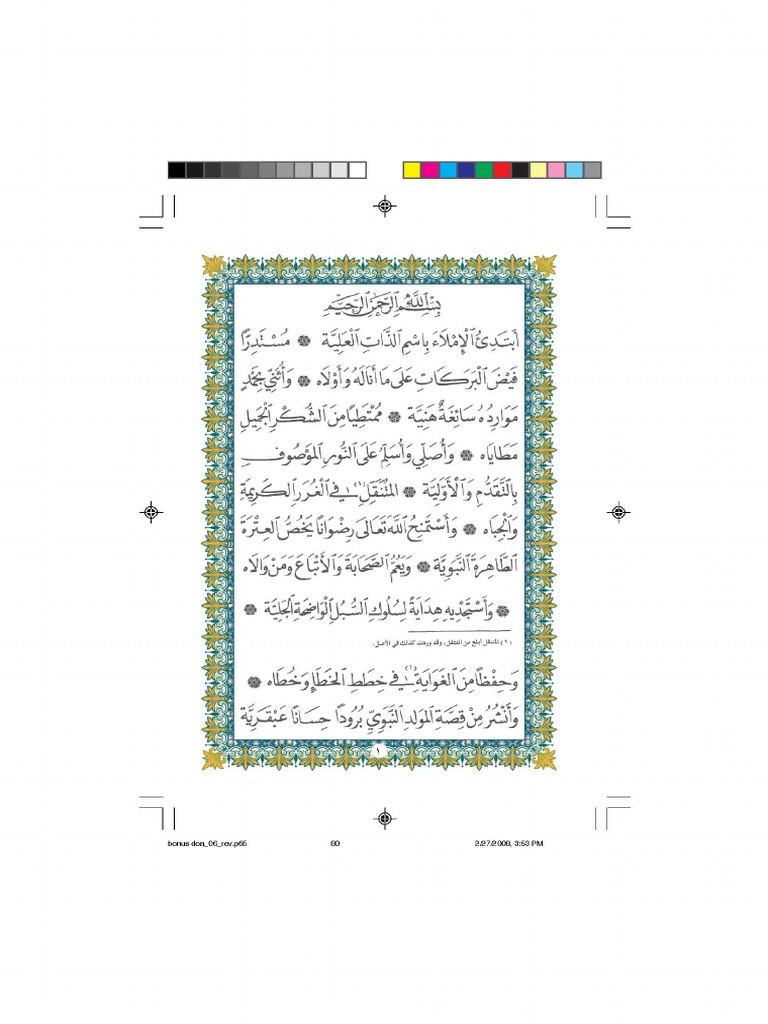 بِسْمِ ٱللَّهِ ٱلرَّحْمَٰنِ ٱلرَّحِيمِ
أَبْتَدِئُ ٱلْإِمْلَاءَ بِٱسْمِ ٱلذَّاتِ ٱلْعَلِيَّة ۞ مُسْتَدِرًّا
فَيْضَ ٱلْبَرَكَاتِ عَلَى مَا أَنَالَهُ وَأَوْلَاه ۞ وَأُثَنِّي بِحَمْدٍ
مَوَارِدُه سَائِغَةٌ هَنِيَّة ۞ مُمْتَطِيًا مِنَ ٱلشُّكْرِ ٱلْجَمِيلِ
مَطَايَاه ۞ وَأُصَلِّي وَأُسَلِّمُ عَلَى ٱلنُّورِ ٱلْمَوْصُوفِ
بِٱلتَّقَدُّمِ وَٱلْأَوَّلِيَّة ۞ ٱلْمُتَنَقِّلِ (١) فِي ٱلْغُرَرِ ٱلْكَرِيمَةِ
وَٱلْجِبَاه ۞ وَأَسْتَمْنِحُ ٱللَّهَ تَعَالَى رِضْوَانًا يَخُصُّ ٱلْعِتْرَةَ
ٱلطَّاهِرَةَ ٱلنَّبَوِيَّة ۞ وَيَعُمُّ ٱلصَّحَابَةَ وَٱلْأَتْبَاعَ وَمَنْ وَالَاه
۞ وَأَسْتَجْدِيهِ هِدَايَةً لِسُلُوكِ ٱلسُّبُلِ ٱلْوَاضِحَةِ ٱلْجَلِيَّة ۞
(١) المتنقل أبلغ من المنتقل، وقد وردت كذلك في الأصل.
وَحِفْظاً مِنَ ٱلْغَوَايَةِ فِي خِطَطِ ٱلْخَطَإِ وَخُطَاه ۞
وَأَنْشُرُ مِنْ قِصَّةِ ٱلْمَوْلِدِ ٱلنَّبَوِيِّ بُرُوداً حِسَانًا عَبْقَرِيَّة
١
bonus doa_06_rev.p65 90 2/27/2008, 3:53 PM